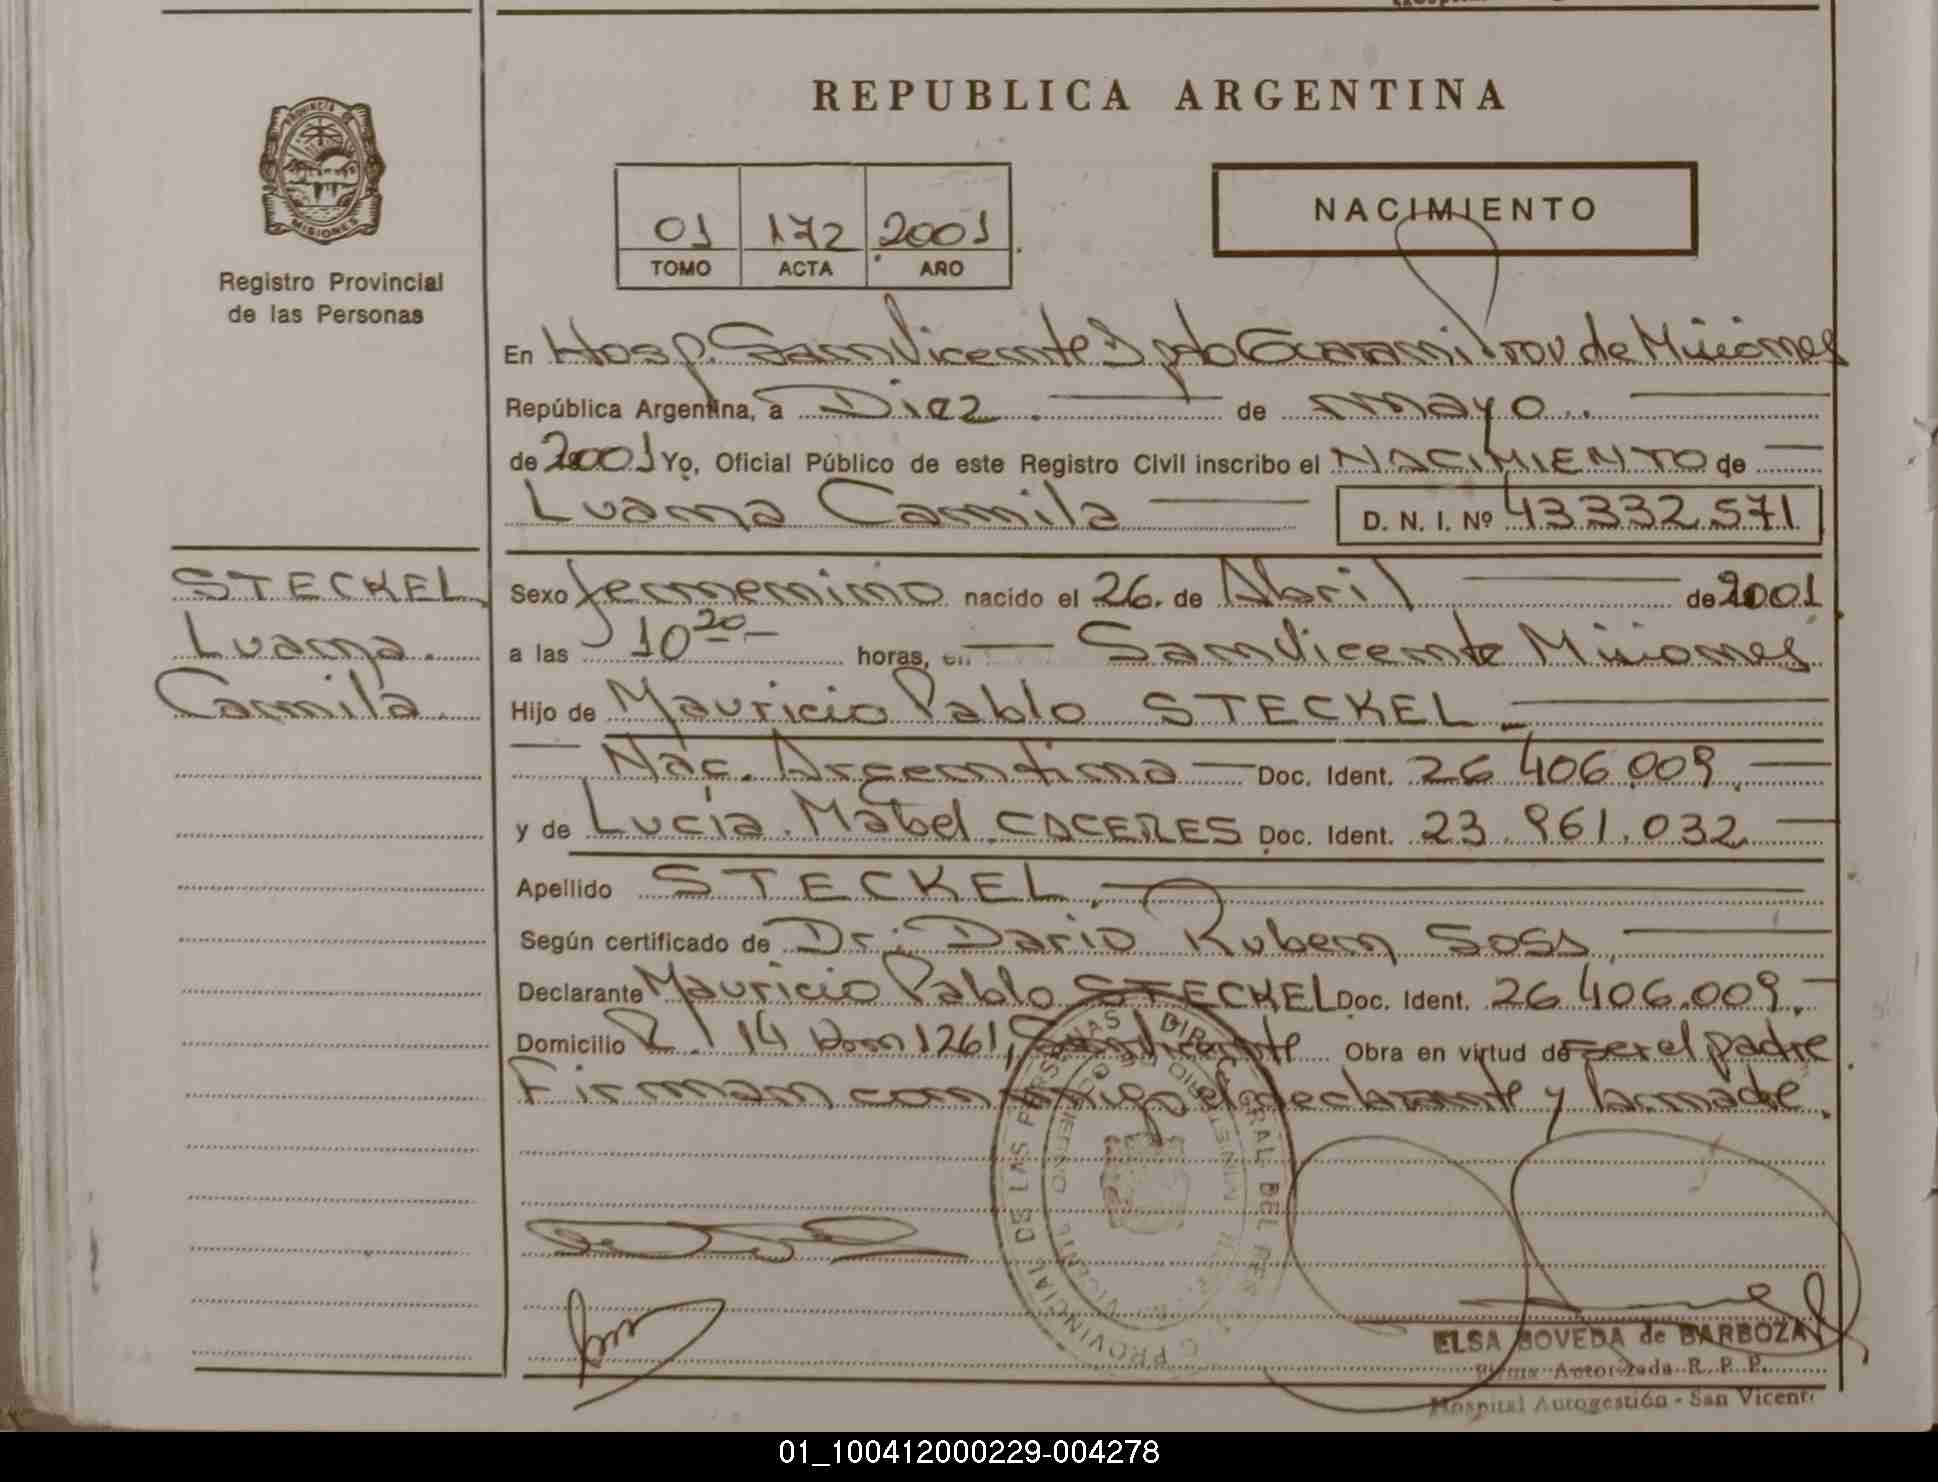 REPUBLICA ARGENTINA
PROVINCIA DE
MISIONES
Registro Provincial
de las Personas
01 172 2001
TOMO ACTA AÑO
NACIMIENTO
En Hosp. San Vicente Dpto Guarani Prov de Misiones
República Argentina, a Diez de mayo
de 2001 Yo, Oficial Público de este Registro Civil inscribo el NACIMIENTO de
Luana Camila D. N. I. Nº 43332571
STECKEL
Luana
Camila
Sexo femenino nacido el 26 de Abril de 2001
a las 10 20 horas, en San Vicente Misiones
Hijo de Mauricio Pablo STECKEL
Nac. Argentina Doc. Ident. 26 406.009
y de Lucía Mabel CACERES Doc. Ident. 23.961.032
Apellido STECKEL
Según certificado de Dr. Dario Ruben Soss
Declarante Mauricio Pablo STECKEL Doc. Ident. 26 406.009
Domicilio R. 14 km 1261, San Vicente Obra en virtud de ser el padre
Firman conmigo el declarante y la madre.
PROVINCIAL DE LAS PERSONAS
ELSA BOVEDA de BARBOZA
Firma Autorizada R. P. P.
Hospital Autogestión - San Vicente
01_100412000229-004278